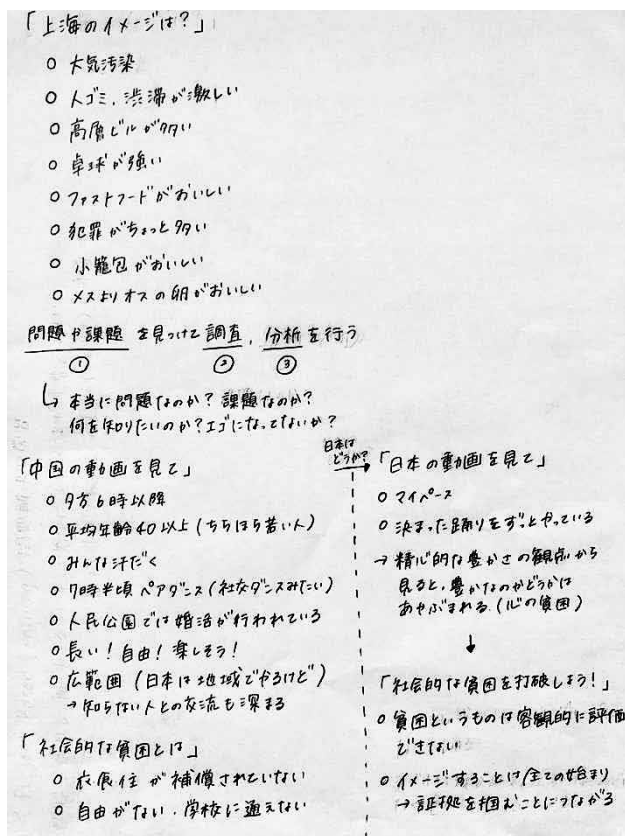 「上海のイメージは？」
○ 大気汚染
○ 人ゴミ、渋滞が激しい
○ 高層ビルが多い
○ 卓球が強い
○ ファストフードがおいしい
○ 犯罪がちょっと多い
○ 小籠包がおいしい
○ メスよりオスの卵がおいしい
問題や課題を見つけて調査、分析を行う
① ② ③
↳ 本当に問題なのか？課題なのか？
何を知りたいのか？エゴになってないか？
「中国の動画を見て」
○ 夕方6時以降
○ 平均年齢40以上(ちらほら若い人)
○ みんな汗だく
○ 7時半頃 ペアダンス(社交ダンスみたい)
○ 人民公園では婚活が行われている
○ 長い！自由！楽しそう！
○ 広範囲(日本は地域でやるけど)
→知らない人との交流も深まる
「社会的な貧困とは」
○ 衣食住が補償されていない
○ 自由がない、学校に通えない
日本は
どうか？
「日本の動画を見て」
○ マイペース
○ 決まった踊りをずっとやっている
→ 精心的な豊かさの観点から
見ると、豊かなのかどうかは
あやぶまれる。(心の貧困)
↓
「社会的な貧困を打破しよう！」
○ 貧困というものは客観的に評価
できない
○ イメージすることは全ての始まり
→ 証拠を掴むことにつながる